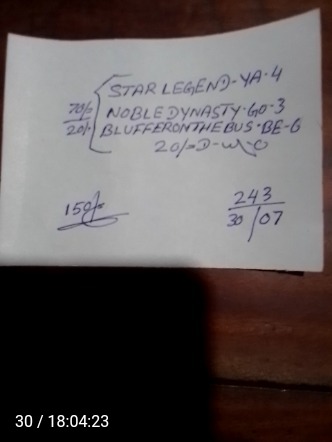 STAR LEGEND-YA-4
70/-
NOBLE DYNASTY-GO-3
20/-
BLUFFERONTHEBUS-BE-6
20/- D-W-C
150/-
243
30/07
30 / 18:04:23